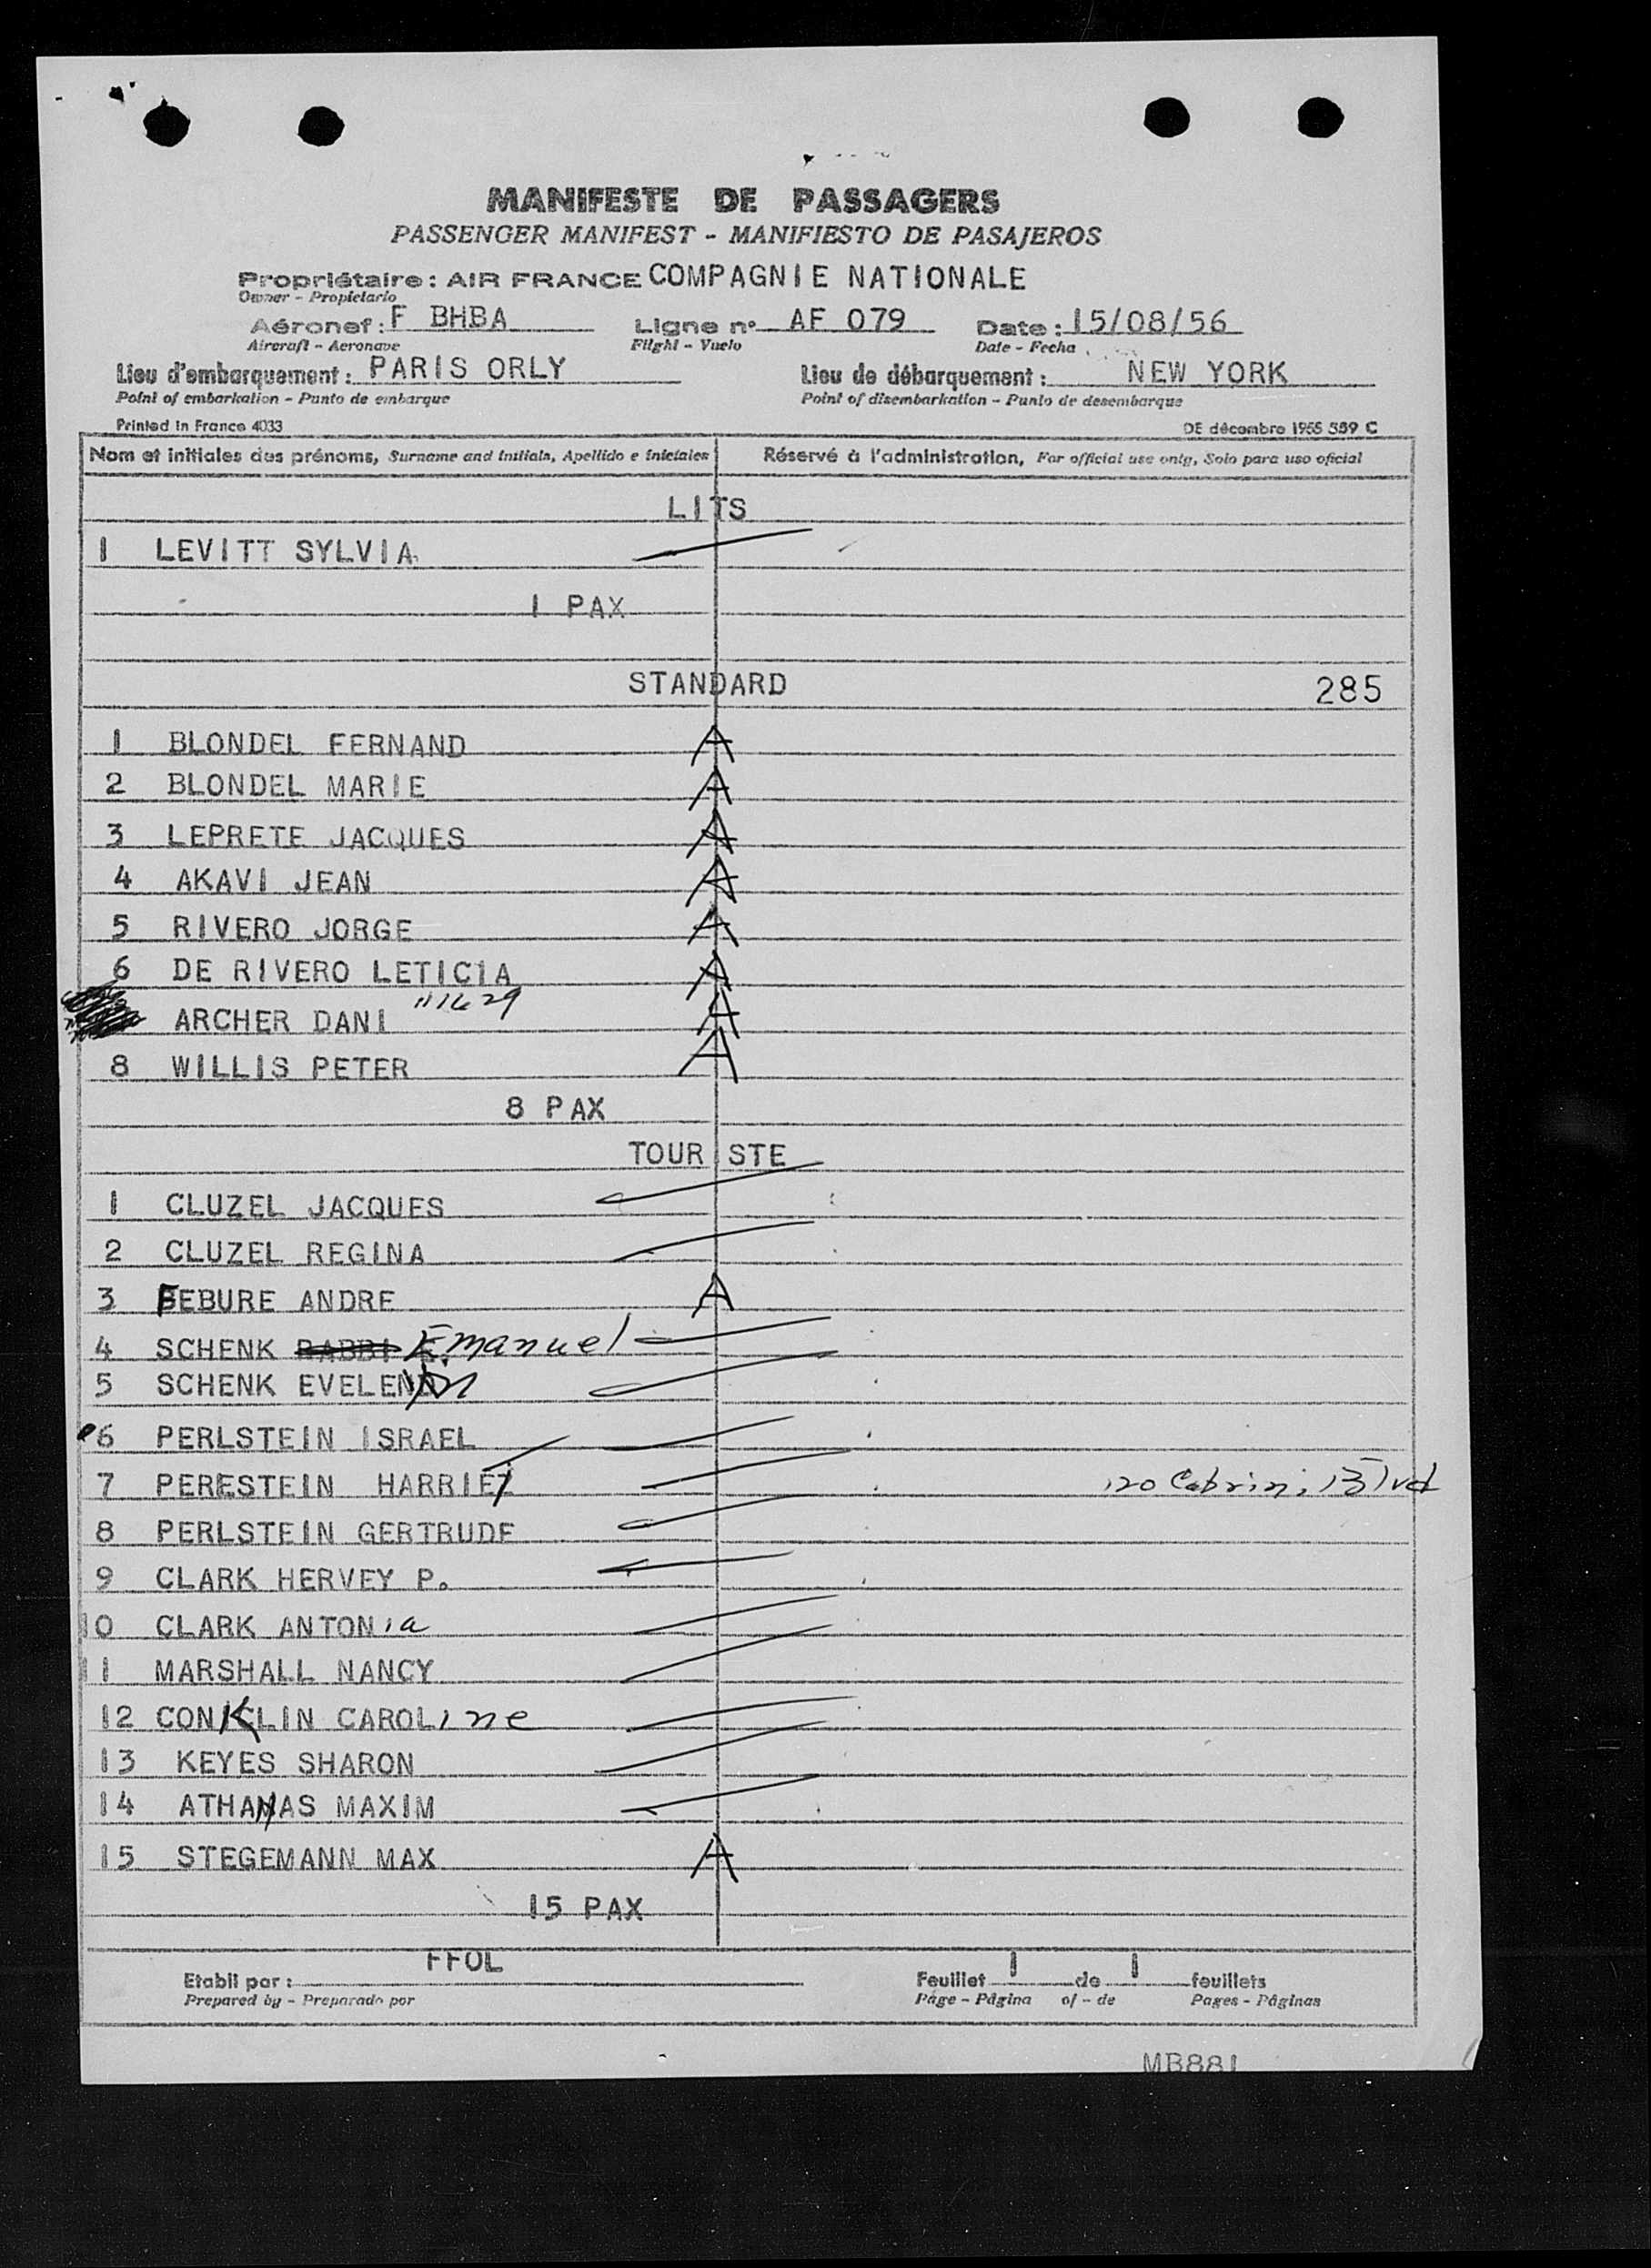 MANIFESTE DE PASSAGERS
PASSENGER MANIFEST - MANIFIESTO DE PASAJEROS
Propriétaire : AIR FRANCE COMPAGNIE NATIONALE
Owner - Propietario
Aéronef : F BHBA Ligne n° AF 079 Date : 15/08/56
Aircraft - Aeronave Flight - Vuelo Date - Fecha
Lieu d'embarquement : PARIS ORLY Lieu de débarquement : NEW YORK
Point of embarkation - Punto de embarque Point of disembarkation - Punto de desembarque
Printed in France 4033 DE décembre 1955 589 C
Nom et initiales des prénoms, Surname and initials, Apellido e iniciales Réservé à l'administration, For official use only, Solo para uso oficial
LITS
1 LEVITT SYLVIA
1 PAX
STANDARD 285
1 BLONDEL FERNAND A
2 BLONDEL MARIE A
3 LEPRETE JACQUES A
4 AKAVI JEAN A
5 RIVERO JORGE A
6 DE RIVERO LETICIA A
ARCHER DANI A
8 WILLIS PETER A
8 PAX
TOURISTE
1 CLUZEL JACQUES
2 CLUZEL REGINA
3 FEBURE ANDRE A
4 SCHENK RABBI E. Emanuel
5 SCHENK EVELEN
6 PERLSTEIN ISRAEL
7 PERESTEIN HARRIET 120 Cabrini Blvd
8 PERLSTEIN GERTRUDE
9 CLARK HERVEY P.
10 CLARK ANTONia
11 MARSHALL NANCY
12 CONKLIN CAROLine
13 KEYES SHARON
14 ATHANAS MAXIM
15 STEGEMANN MAX A
15 PAX
Etabli par : FFOL Feuillet 1 de 1 feuillets
Prepared by - Preparado por Page - Página of - de Pages - Páginas
MB881